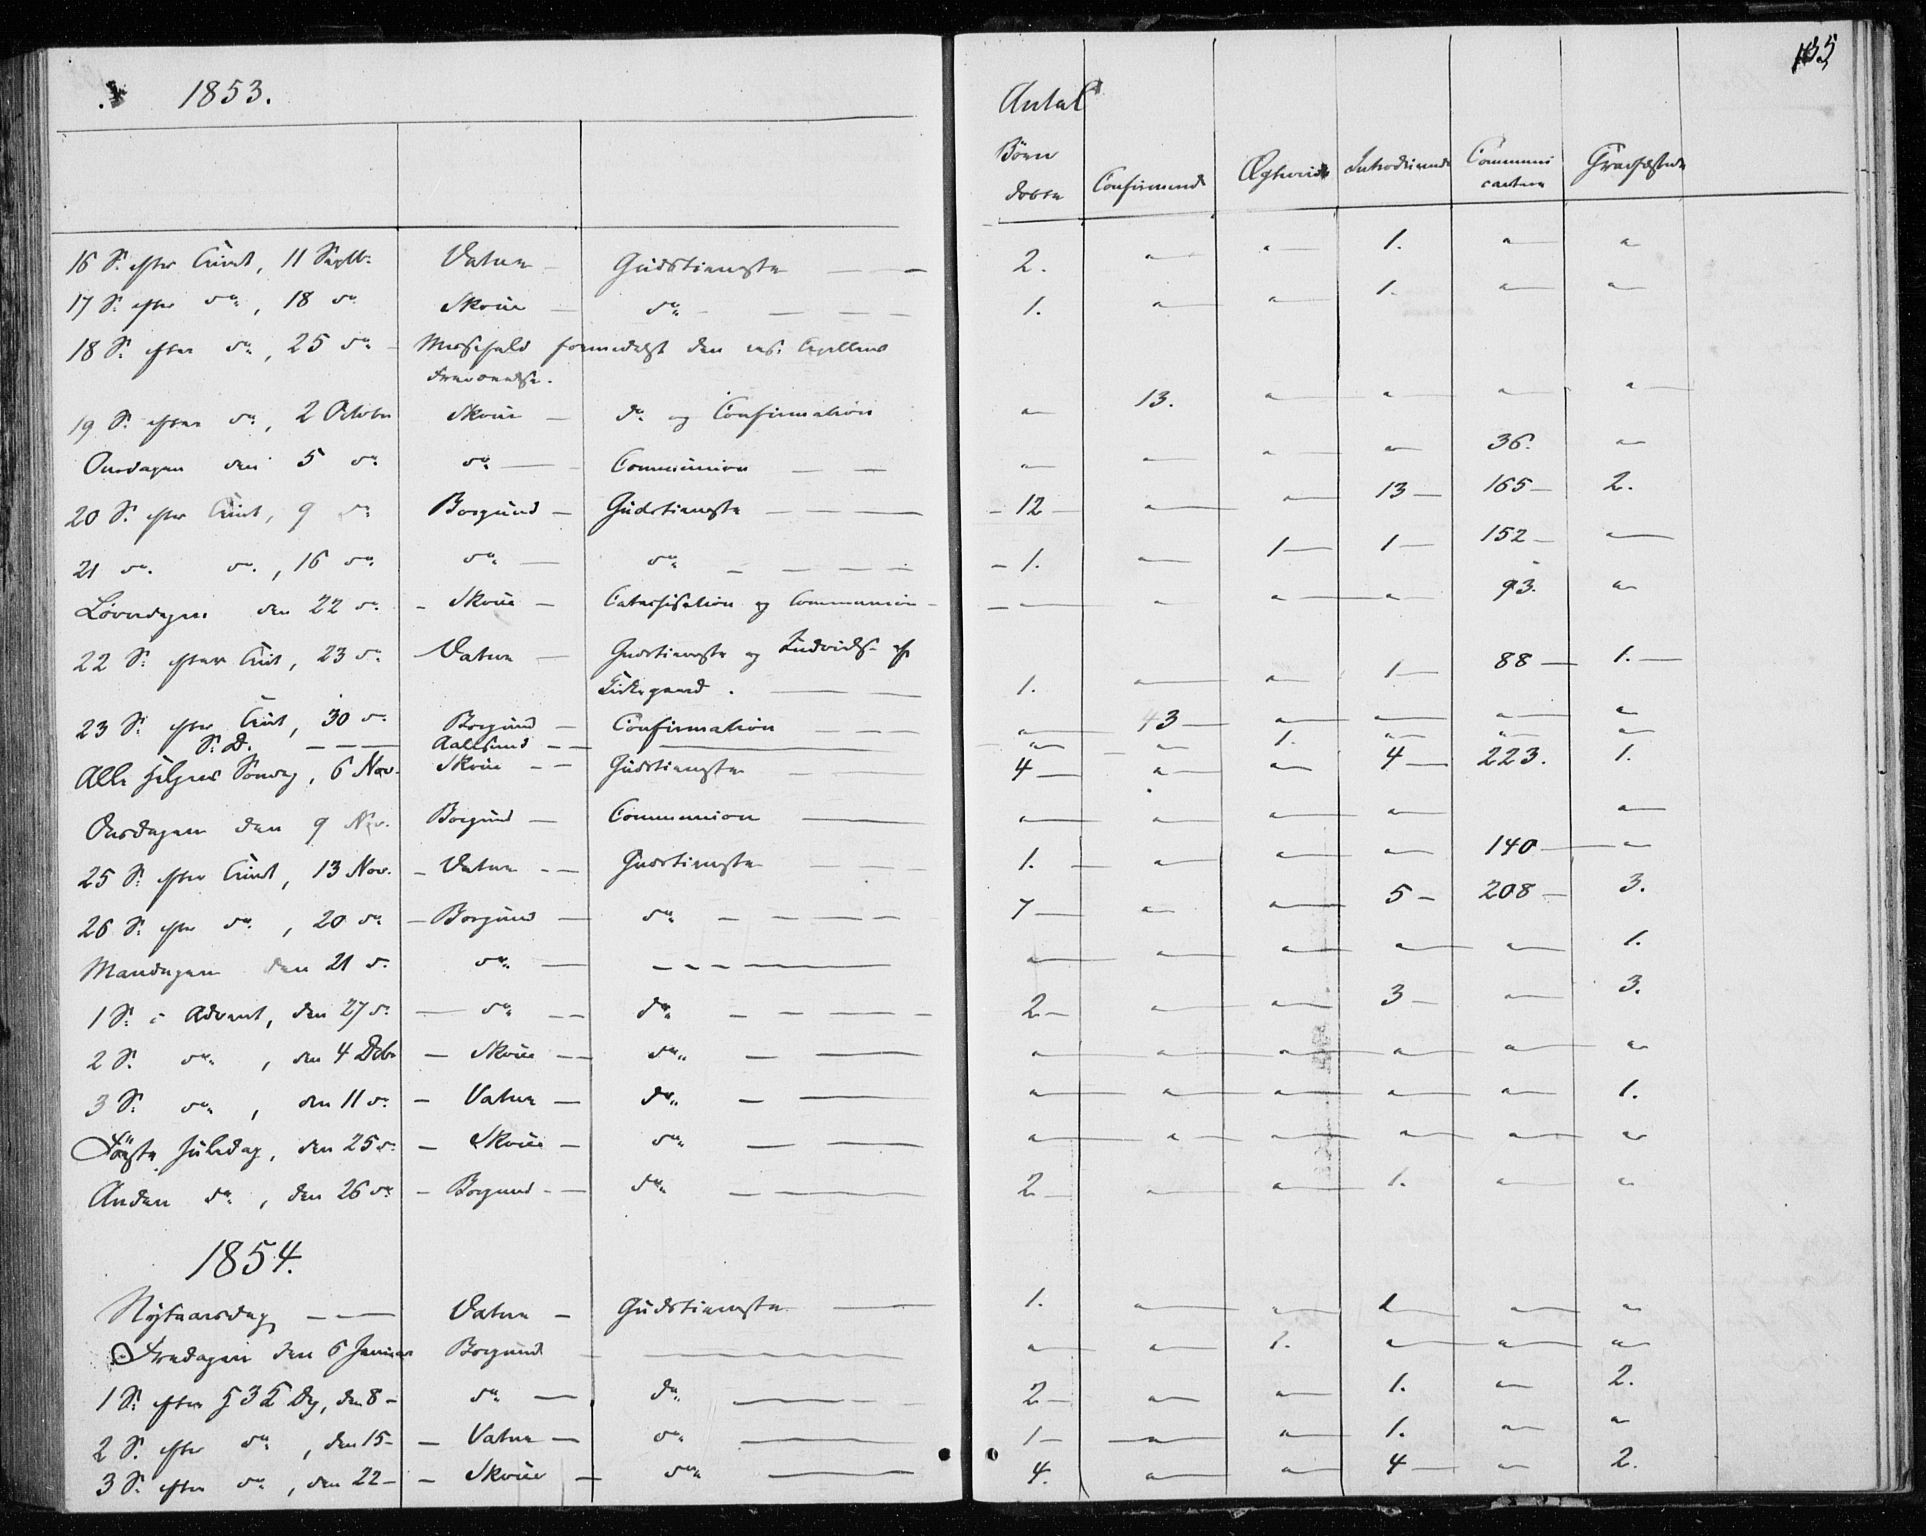 1853.
Antal
135
Børn døbte Confirmerede Ægteviede Introducerede Communicanter Gravfæstede
16 S. efter Trinit, 11 Septb. Vatne Gudstieneste 2. " " 1. " "
17 S. efter do, 18 do Skoue do 1. " " 1. " "
18 S. efter do, 25 do Messefald formedelst den res. Capellans
Fraværelse.
19 S. efter do, 2 October Skoue do og Confirmation " 13. " " " "
Onsdagen den 5 do do Communion " " " " 36. "
20 S. efter Trinit, 9 do Borgund Gudstieneste 12 " " 13 165 2.
21 do do, 16 do do do 1. " 1 1 152 "
Løverdagen den 22 do Skoue Catechisation og Communion " " " " 93. "
22 S. efter Trin, 23 do Vatne Gudstieneste og Indvids. af
Kirkegaard. 1. " " 1 88 1.
23 S. efter Trinit, 30 do Borgund Confirmation " 43 " " " "
S. D. Aalesund " " 1. " " "
Alle Helgens Søndag, 6 Nov. Skoue Gudstieneste 4 " " 4 223. 1.
Onsdagen den 9 Nov. Borgund Communion " " " " "
25 S. efter Trinit, 13 Nov. Vatne Gudstieneste 1. " " " 140 "
26 S. efter do, 20 do Borgund do 7 " " 5 208 3.
Mandagen den 21 d. do " " " " " 1.
1 S. i Advent, den 27 d. do do 2 " " 3 " 3.
2 S. do, den 4 Decbr Skoue do " " " " " "
3 S. do, den 11 do Vatne do " " " " " 1.
Første Juledag, den 25 d. Skoue do " " " " " "
Anden do, den 26 do Borgund do 2 " " 1. " "
1854.
Nytaarsdag Vatne Gudstieneste 1. " " 1 " "
Fredagen den 6 Januar Borgund " " 1. " " "
1 S. efter H 3 K Dg, den 8 do do 2 " " 1. " 2.
2 S. efter do, den 15 Vatne do 1 " " 1. " "
3 S. efter do, den 22 Skoue do 4. " " 4 " 2.